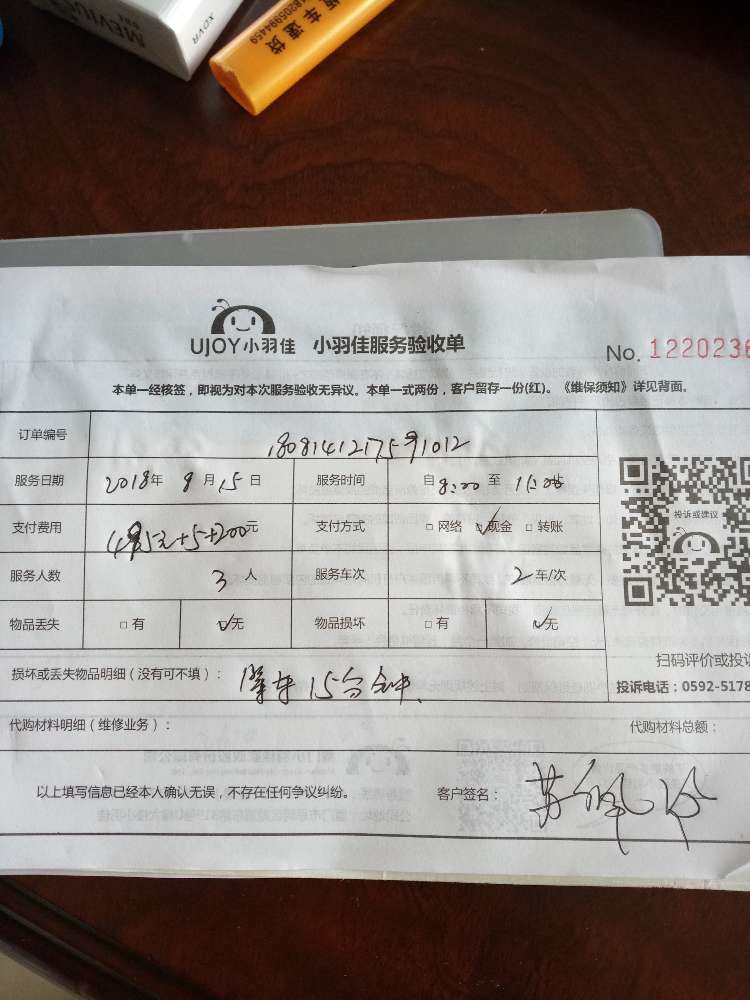 XDVR
8205994459
车速货
UJOY小羽佳 小羽佳服务验收单
No. 1220236
本单一经核签，即视为对本次服务验收无异议。本单一式两份，客户留存一份(红)。《维保须知》详见背面。
订单编号
服务日期 2018年 8月15日 服务时间 自8:00至
支付费用 元 支付方式 □网络 ☑现金 □转账
服务人数 3人 服务车次 2车/次
物品丢失 □有 ☑无 物品损坏 □有 ☑无
投诉或建议
扫码评价或投诉
投诉电话：0592-5178
损坏或丢失物品明细（没有可不填）： 15台
代购材料明细（维修业务）： 代购材料总额：
以上填写信息已经本人确认无误，不存在任何争议纠纷。 客户签名：